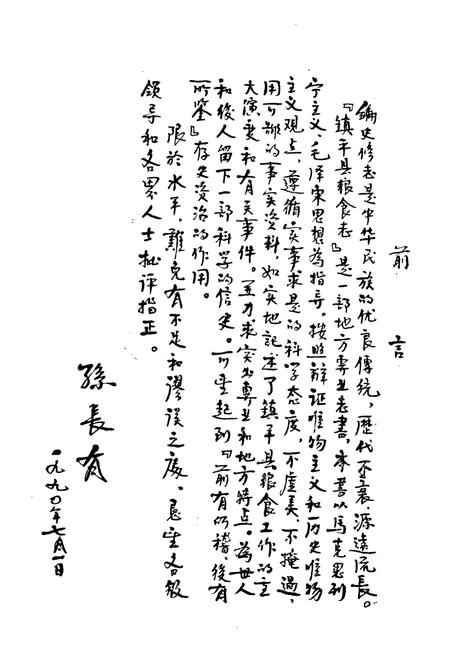 前言
编史修志是中华民族的优良傳統，歷代不衰，源遠流長。
『鎮平县粮食志』是一部地方專业志書，本書以馬克思列
宁主义、毛泽東思想為指导，按照辯证唯物主义和历史唯物
主义观点，遵循实事求是的科学态度，不虚美、不掩過，
用可靠的事实資料，如实地記述了鎮平县粮食工作的主
大演变和有关事件。并力求突出專业和地方特点。為世人
和後人留下一部科学的信史。可望起到『前有所稽，後有
所鉴』存史资治的作用。
限於水平，難免有不足和謬误之處，恳望各级
领导和各界人士批评指正。
孫長有
一九九〇年七月一日